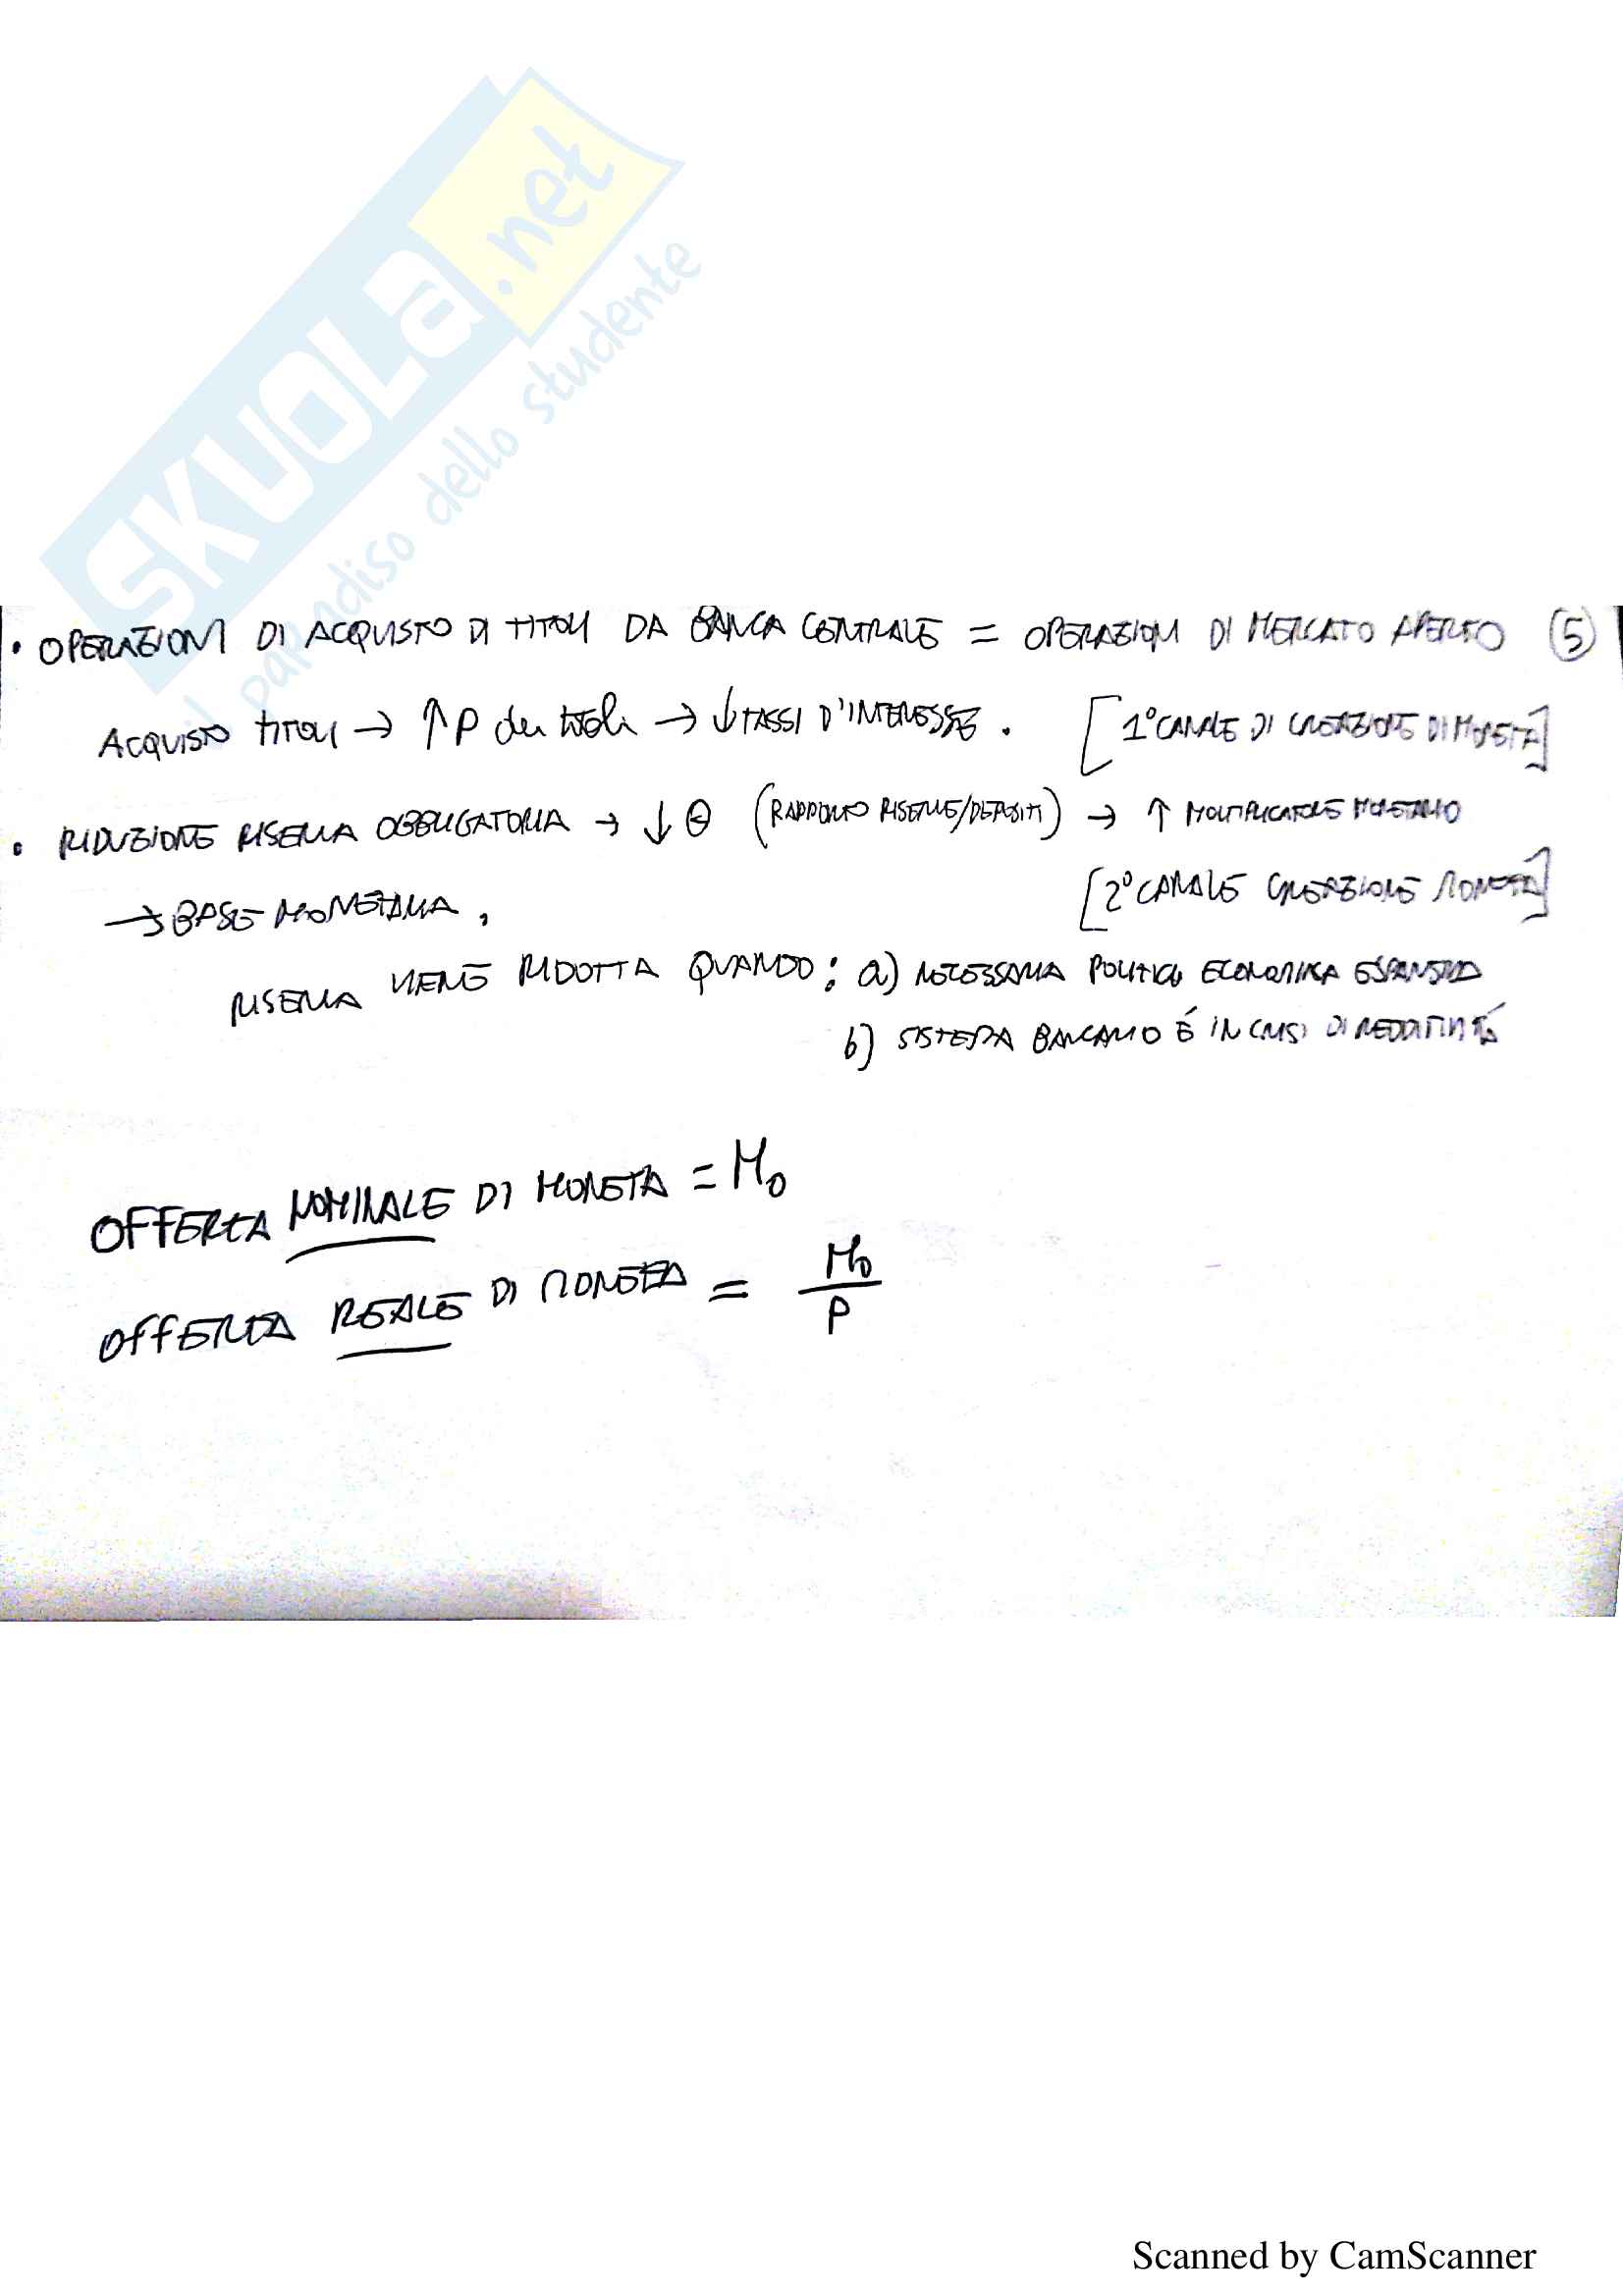 SKUOLA.net
il paradiso dello studente
• OPERAZIONI DI ACQUISTO DI TITOLI DA BANCA CENTRALE = OPERAZIONI DI MERCATO APERTO (5)
ACQUISTO TITOLI → ↑ P dei titoli → ↓ TASSI D'INTERESSE. [1° CANALE DI CREAZIONE DI MONETA]
• RIDUZIONE RISERVA OBBLIGATORIA → ↓ θ (RAPPORTO RISERVE/DEPOSITI) → ↑ MOLTIPLICATORE MONETARIO
→ BASE MONETARIA, [2° CANALE CREAZIONE MONETA]
RISERVA VIENE RIDOTTA QUANDO: a) NECESSARIA POLITICA ECONOMICA ESPANSIVA
b) SISTEMA BANCARIO É IN CRISI DI REDDITIVITÁ
OFFERTA NOMINALE DI MONETA = M₀
OFFERTA REALE DI MONETA = M₀/P
Scanned by CamScanner